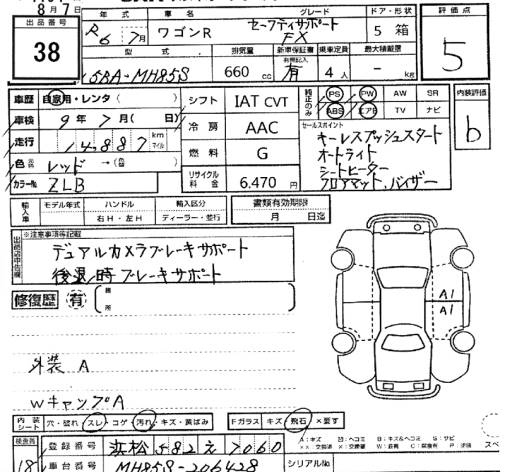 8月7日
出品番号
38
年式 車名 グレード ドア・形状
R6年7月 ワゴンR セーフティサポート FX 5 箱
型式 排気量 新車保証書 乗車定員 最大積載量
5BA-MH85S 660cc 有 4人 - kg
評価点
5
車歴 自家用・レンタ( )
車検 9年7月( 日)
走行 14,887 km マイル
色 レッド→(色 )
カラーNo ZLB
シフト IAT CVT
冷房 AAC
燃料 G
リサイクル料金 6,470円
純正のみ PS PW AW SR
ABS エアB TV ナビ
内装評価
b
セールスポイント
キーレスプッシュスタート
オートライト
シートヒーター
フロアマット.バイザー
輸入車 モデル年式 ハンドル 輸入区分 書類有効期限
右H・左H ディーラー・並行 月 日迄
※注意事項等記載
デュアルカメラブレーキサポート
後退時ブレーキサポート
修復歴 有
箇所
A1
A1
外装 A
WキャンプA
内装シート 穴・破れ・スレ・コゲ・汚れ・キズ・黄ばみ Fガラス キズ・飛石・×要す
検査員
18
登録番号 浜松582え7060
車台番号 MH85S-206428
シリアルNo
A：キズ